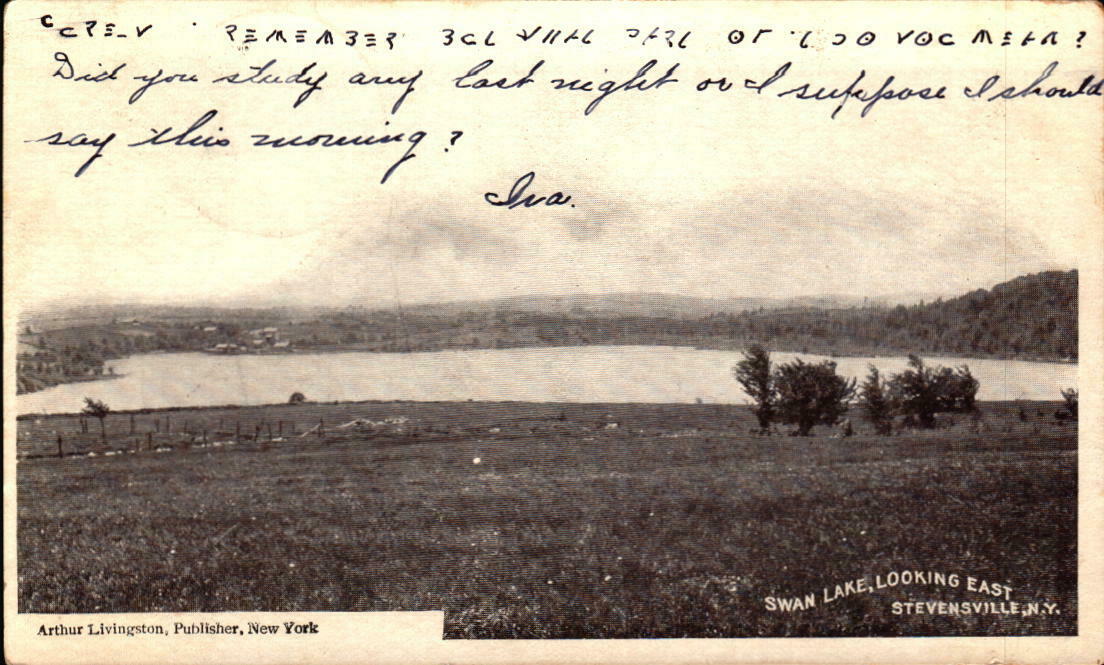 REMEMBER
Did you study any last night or I suppose I should
say this morning ?
Iva.
SWAN LAKE, LOOKING EAST
STEVENSVILLE, N.Y.
Arthur Livingston, Publisher, New York